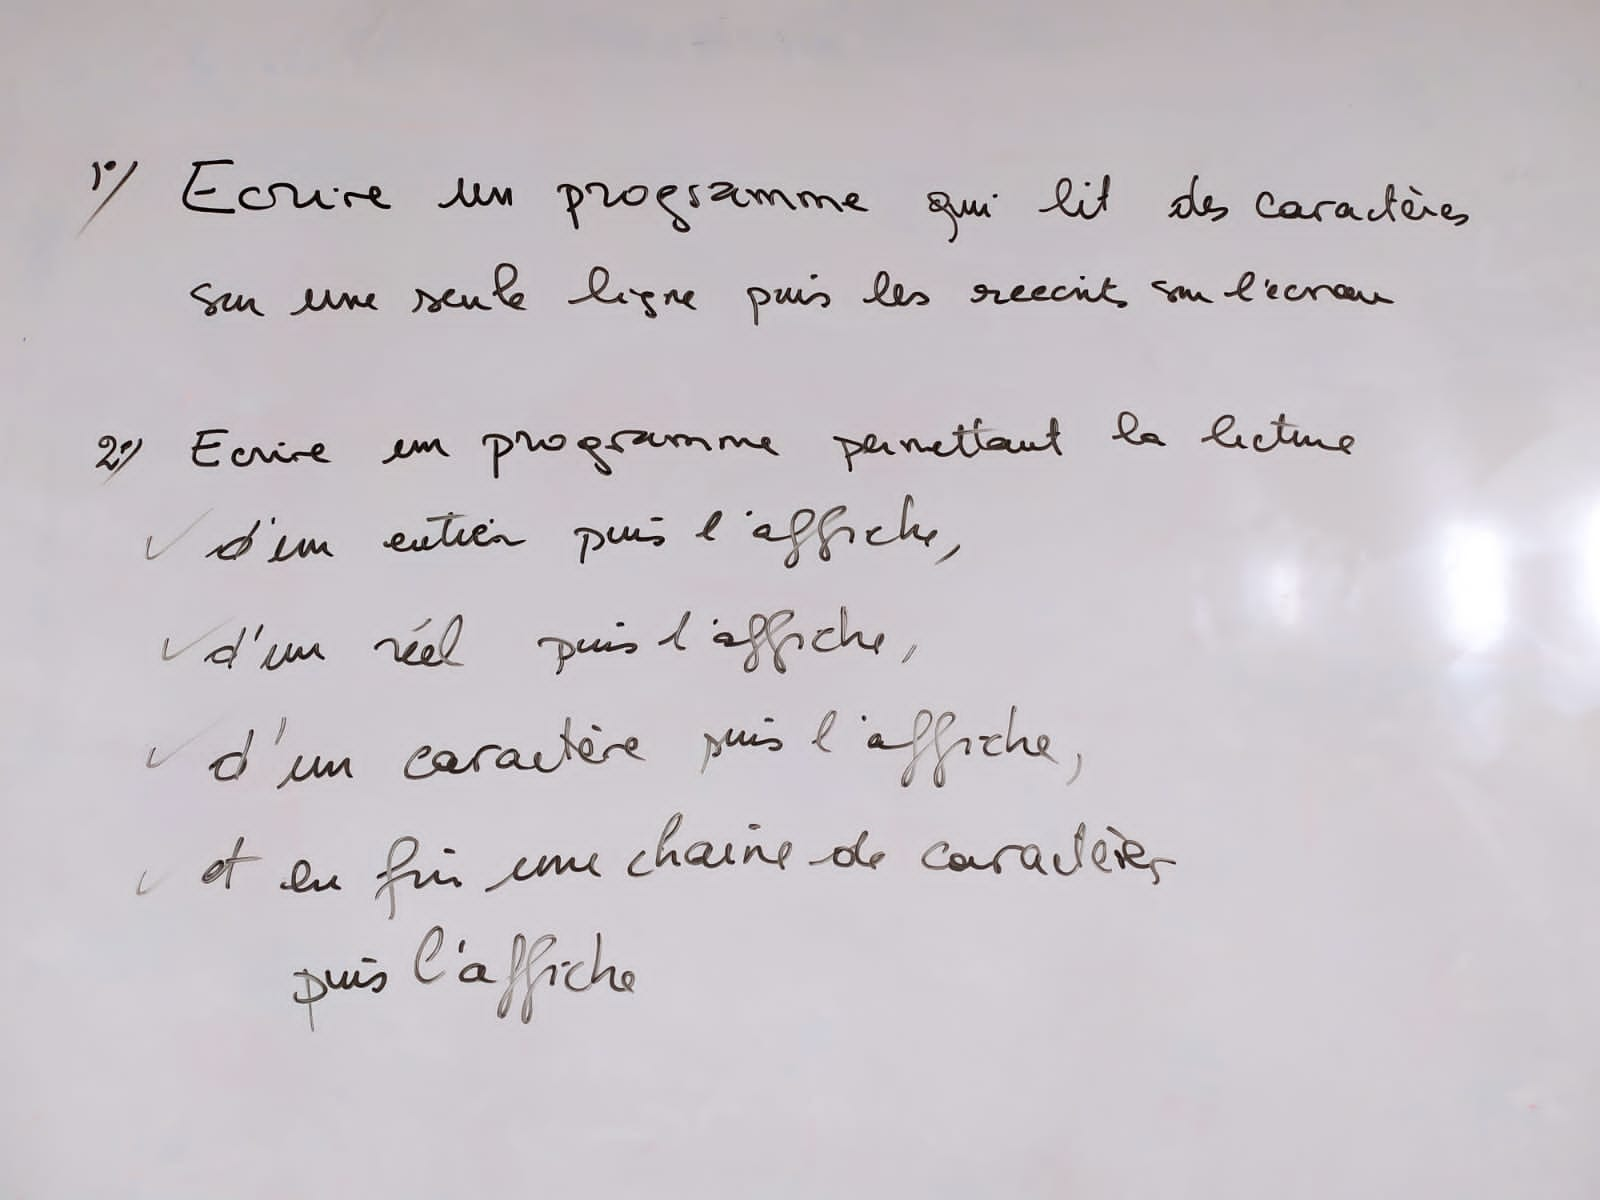 1°/ Ecrire un programme qui lit des caractères
sur une seule ligne puis les reecrits sur l'ecran
2°/ Ecrire un programme permettant la lecture
✓ d'un entier puis l'affiche,
✓ d'un réel puis l'affiche,
✓ d'un caractère puis l'affiche,
✓ et en fin une chaine de caractères
puis l'affiche